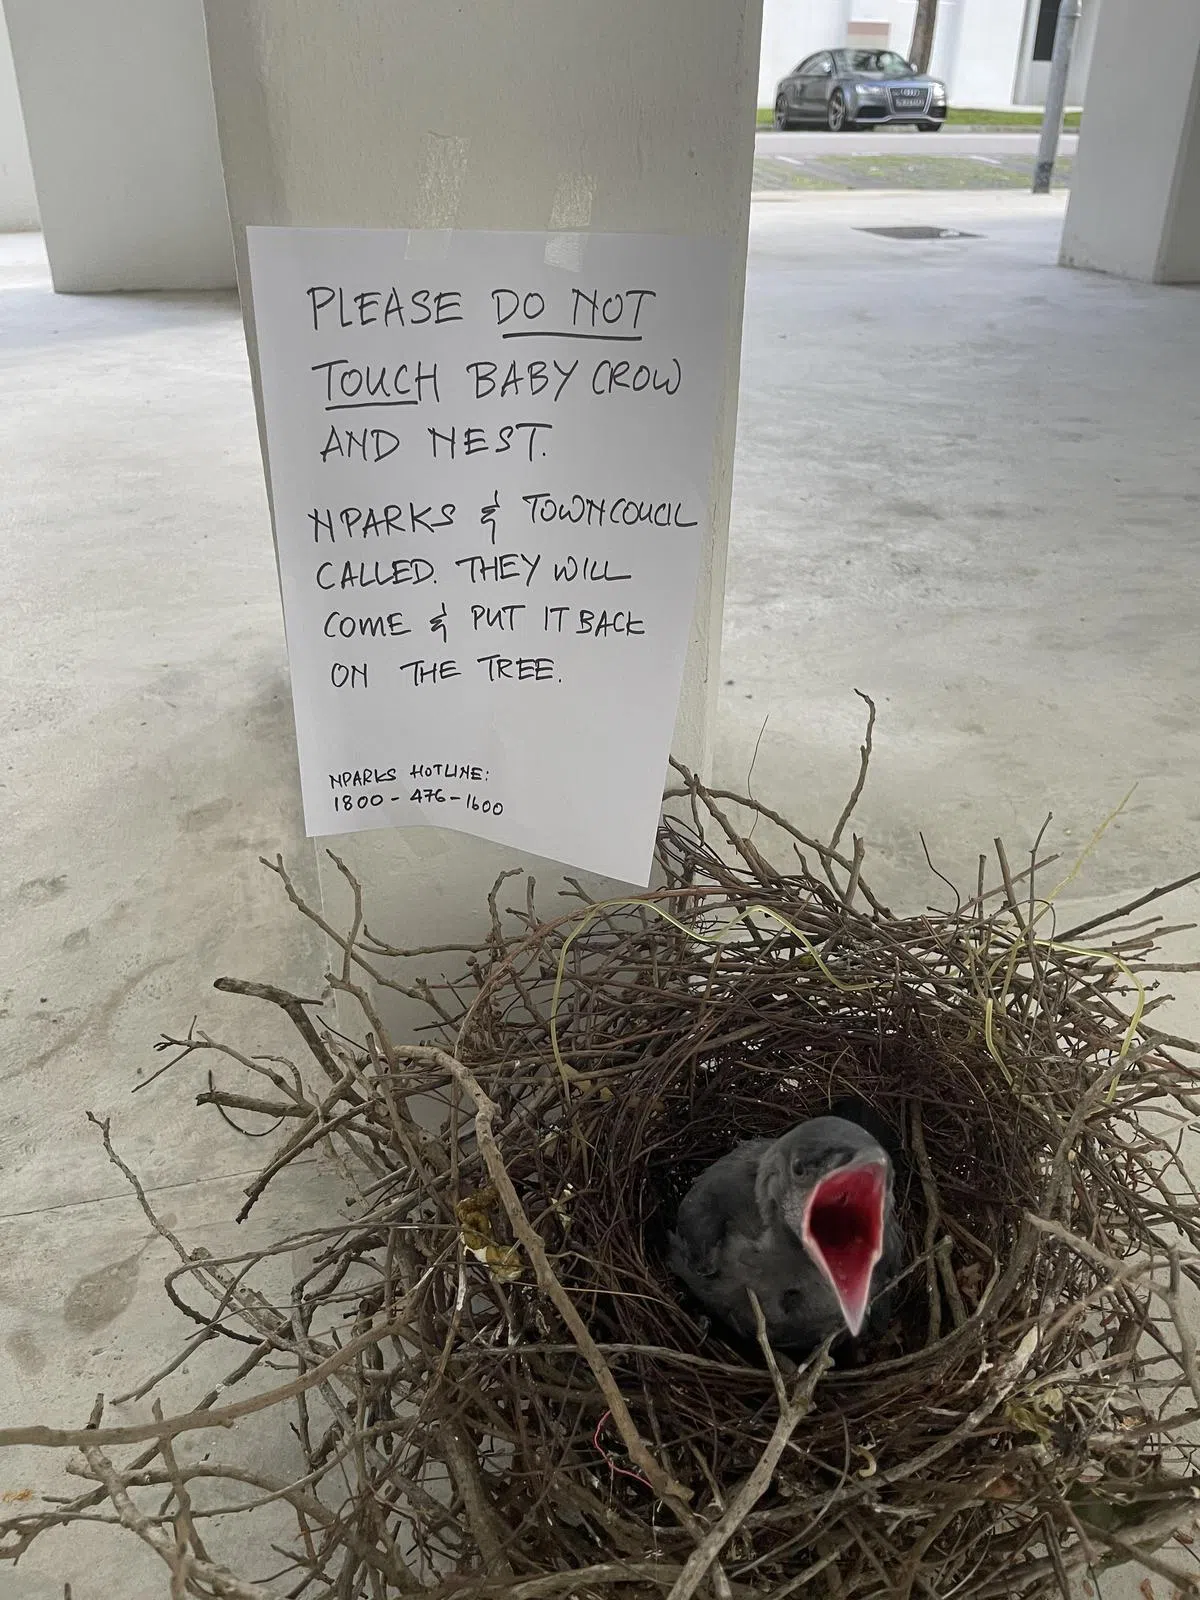 PLEASE DO NOT
TOUCH BABY CROW
AND NEST.
NPARKS & TOWNCOUCIL
CALLED. THEY WILL
COME & PUT IT BACK
ON THE TREE.
NPARKS HOTLINE:
1800-476-1600